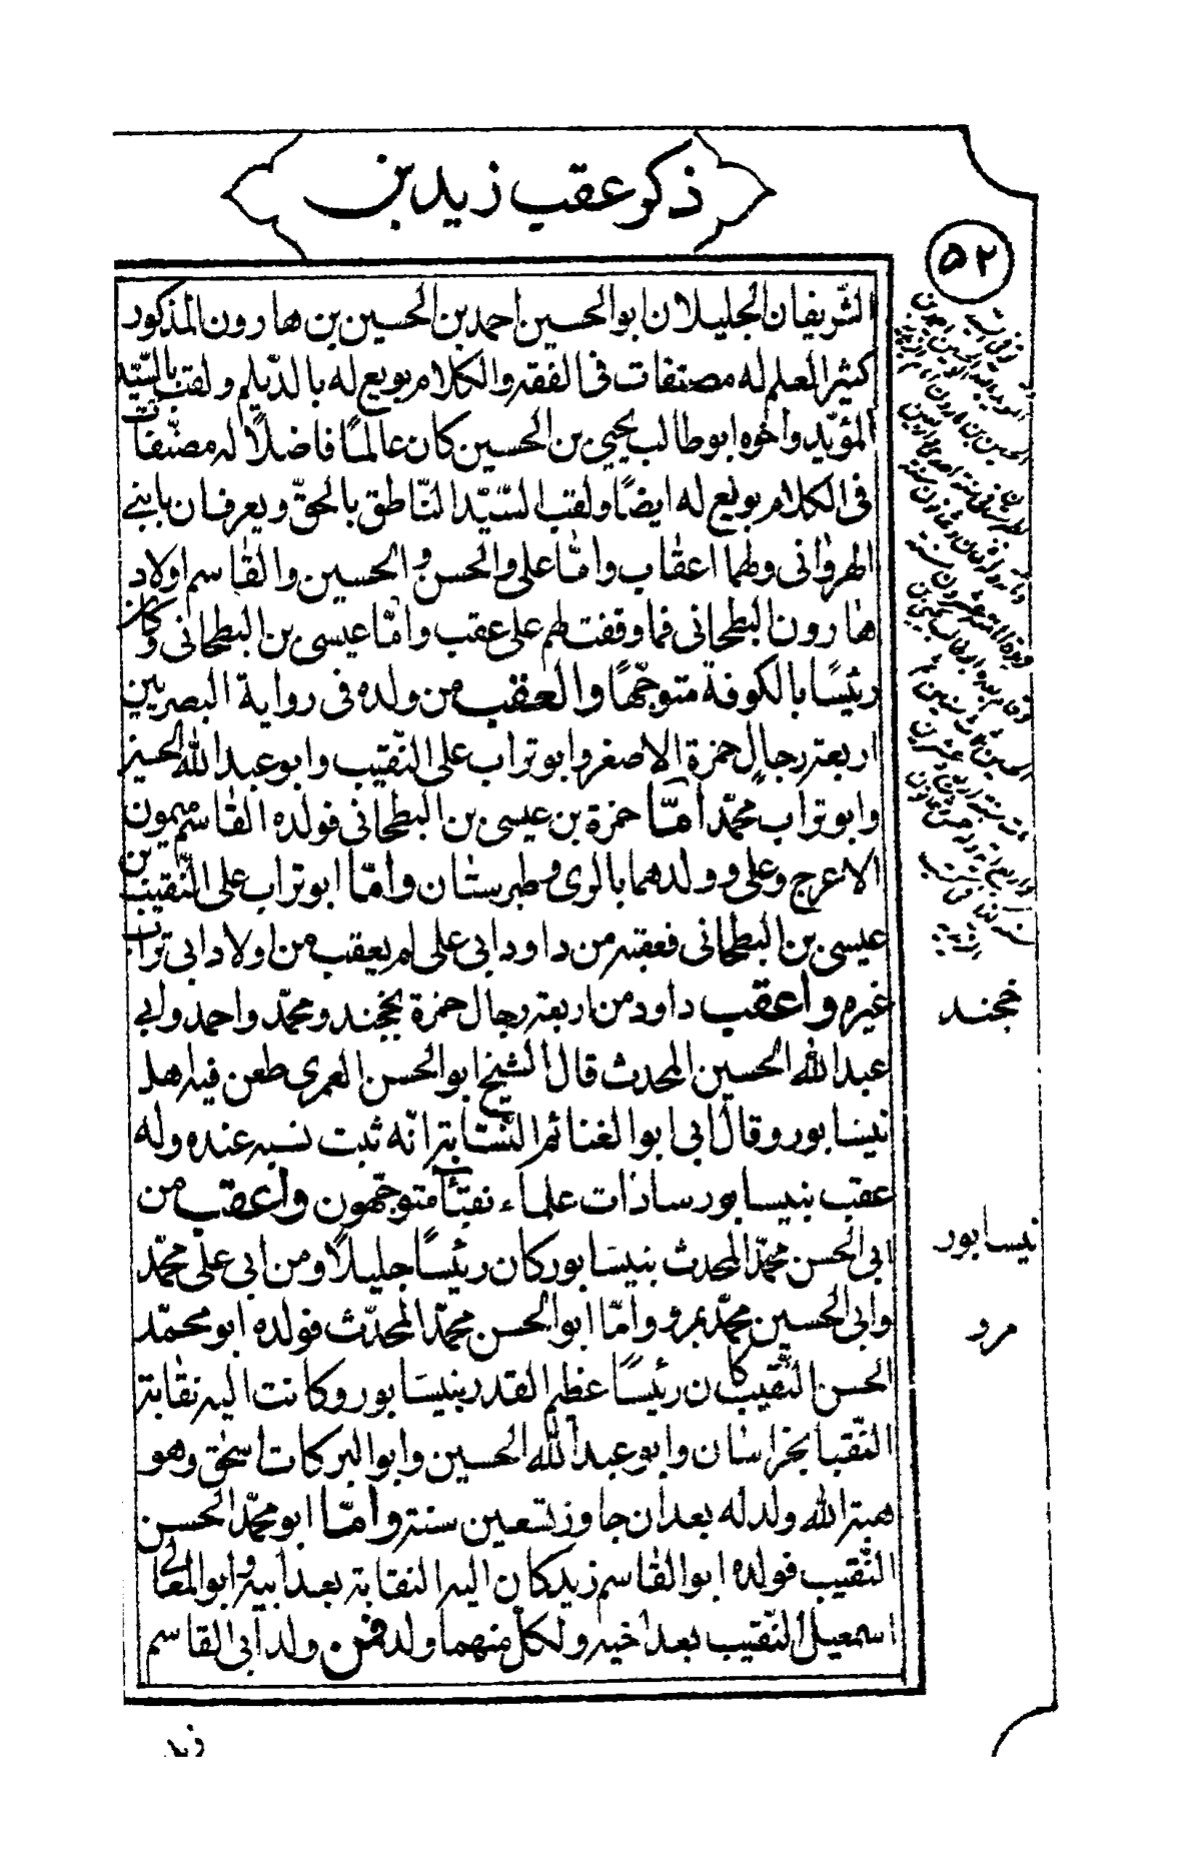 ذكر عقب زيد بن
٥٢
الشّريفان الجليلان ابو الحسين احمد بن الحسين بن هارون المذكور
كثير العلم له مصنفات فى الفقه والكلام بويع له بالدّيلم ولقب بالسّيّد
المؤيّد واخوه ابو طالب يحيى بن الحسين كان عالمًا فاضلًا له مصنّفات
فى الكلام بويع له ايضًا ولقب السّيّد النّاطق بالحقّ ويعرفان بابنى
الهرونى ولهما اعقاب وامّا على والحسن والحسين والقاسم اولاد
هارون البطحانى فما وقفت لهم على عقب وامّا عيسى بن البطحانى وكان
رئيسًا بالكوفة متوجّهًا والعقب من ولده فى رواية البصريين
اربعة رجال حمزة الاصغر وابو تراب على النّقيب وابو عبد الله الحسين
وابو تراب محمّد امّا حمزة بن عيسى بن البطحانى فولده القاسم ميمون
الاعرج وعلى وولدهما بالرى وطبرستان وامّا ابو تراب على النّقيب بن
عيسى بن البطحانى فعقبه من داود ابى على لم يعقب من اولاد ابى تراب
غيره واعقب داود من اربعة رجال حمزة بخجند ومحمّد واحمد وابى
عبد الله الحسين المحدث قال الشيخ ابو الحسن العمرى طعن فيه اهل
نيسابور وقال ابى ابو الغنائم النّسّابة انّه ثبت نسبه عنده وله
عقب بنيسابور سادات علماء نقبآء متوجّهون واعقب من
ابى الحسن محمّد المحدث بنيسابور كان رئيسًا جليلًا ومن ابى على محمّد
وابى الحسين محمّد بمرو وامّا ابو الحسن محمّد المحدّث فولده ابو محمّد
الحسن النّقيب كان رئيسًا عظيم القدر بنيسابور وكانت اليه نقابة
النّقبا بخراسان وابو عبد الله الحسين وابو البركات اسحق وهو
هبة الله ولد له بعد ان جاوز تسعين سنة وامّا ابو محمّد الحسن
النّقيب فولده ابو القاسم زيد كان اليه النقابة بعد ابيه وابو المعالى
اسمعيل النّقيب بعد اخيه ولكلّ منهما ولد فمن ولد ابى القاسم
زيد
خجند
نيسابور
مرو